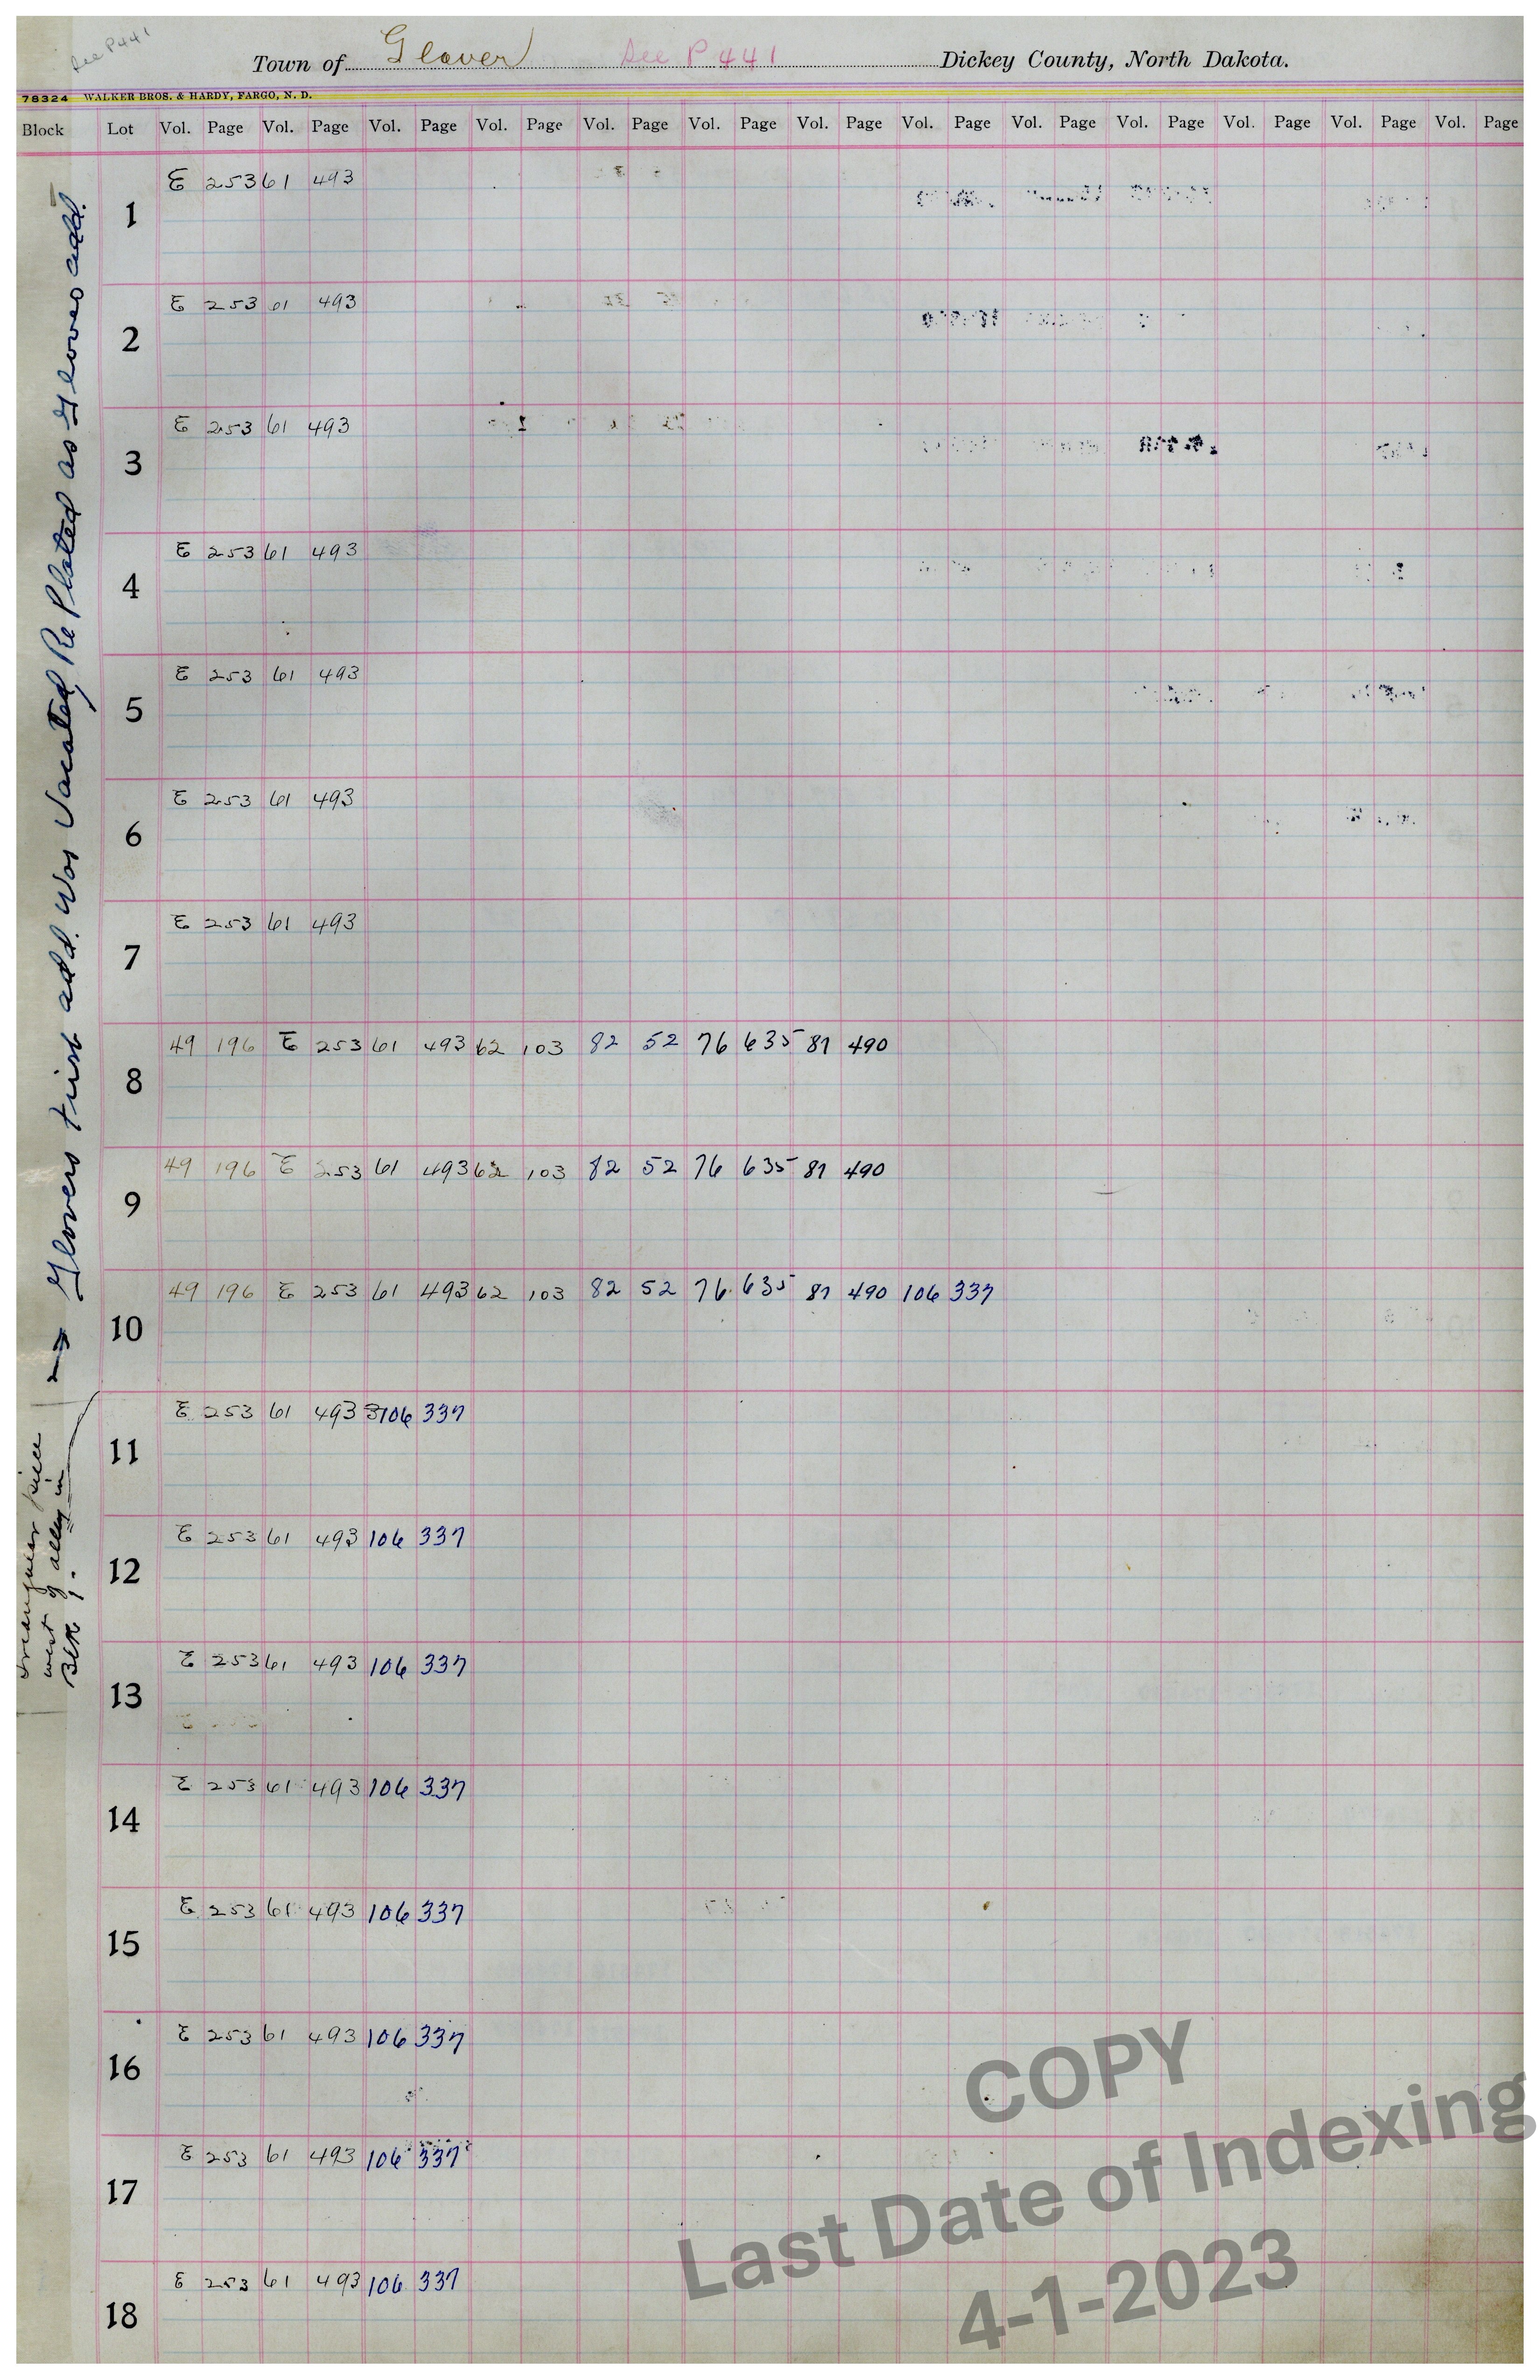 See P441
Town of Glover See P 441 Dickey County, North Dakota.
78324 WALKER BROS. & HARDY, FARGO, N. D.
Block Lot Vol. Page Vol. Page Vol. Page Vol. Page Vol. Page Vol. Page Vol. Page Vol. Page Vol. Page Vol. Page Vol. Page Vol. Page Vol. Page
Glovers First add. was Vacated, RePlated as Glovers add.
1 E 253 61 493
2 E 253 61 493
3 E 253 61 493
4 E 253 61 493
5 E 253 61 493
6 E 253 61 493
7 E 253 61 493
8 49 196 E 253 61 493 62 103 82 52 76 635 81 490
9 49 196 E 253 61 493 62 103 82 52 76 635 81 490
10 49 196 E 253 61 493 62 103 82 52 76 635 81 490 106 337
11 E 253 61 493 106 337
12 E 253 61 493 106 337
13 E 253 61 493 106 337
14 E 253 61 493 106 337
15 E 253 61 493 106 337
16 E 253 61 493 106 337
17 E 253 61 493 106 337
18 E 253 61 493 106 337
piece
west of alley in
Blk 1.
COPY
Last Date of Indexing
4-1-2023